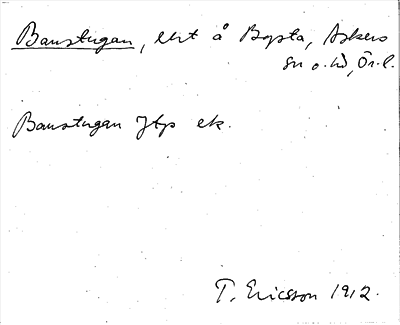 Baustugan, lht å Bopsta, Askers
sn o. hd, Ör. l.
Baustugan Jtp ek.
T. Ericsson 1912.